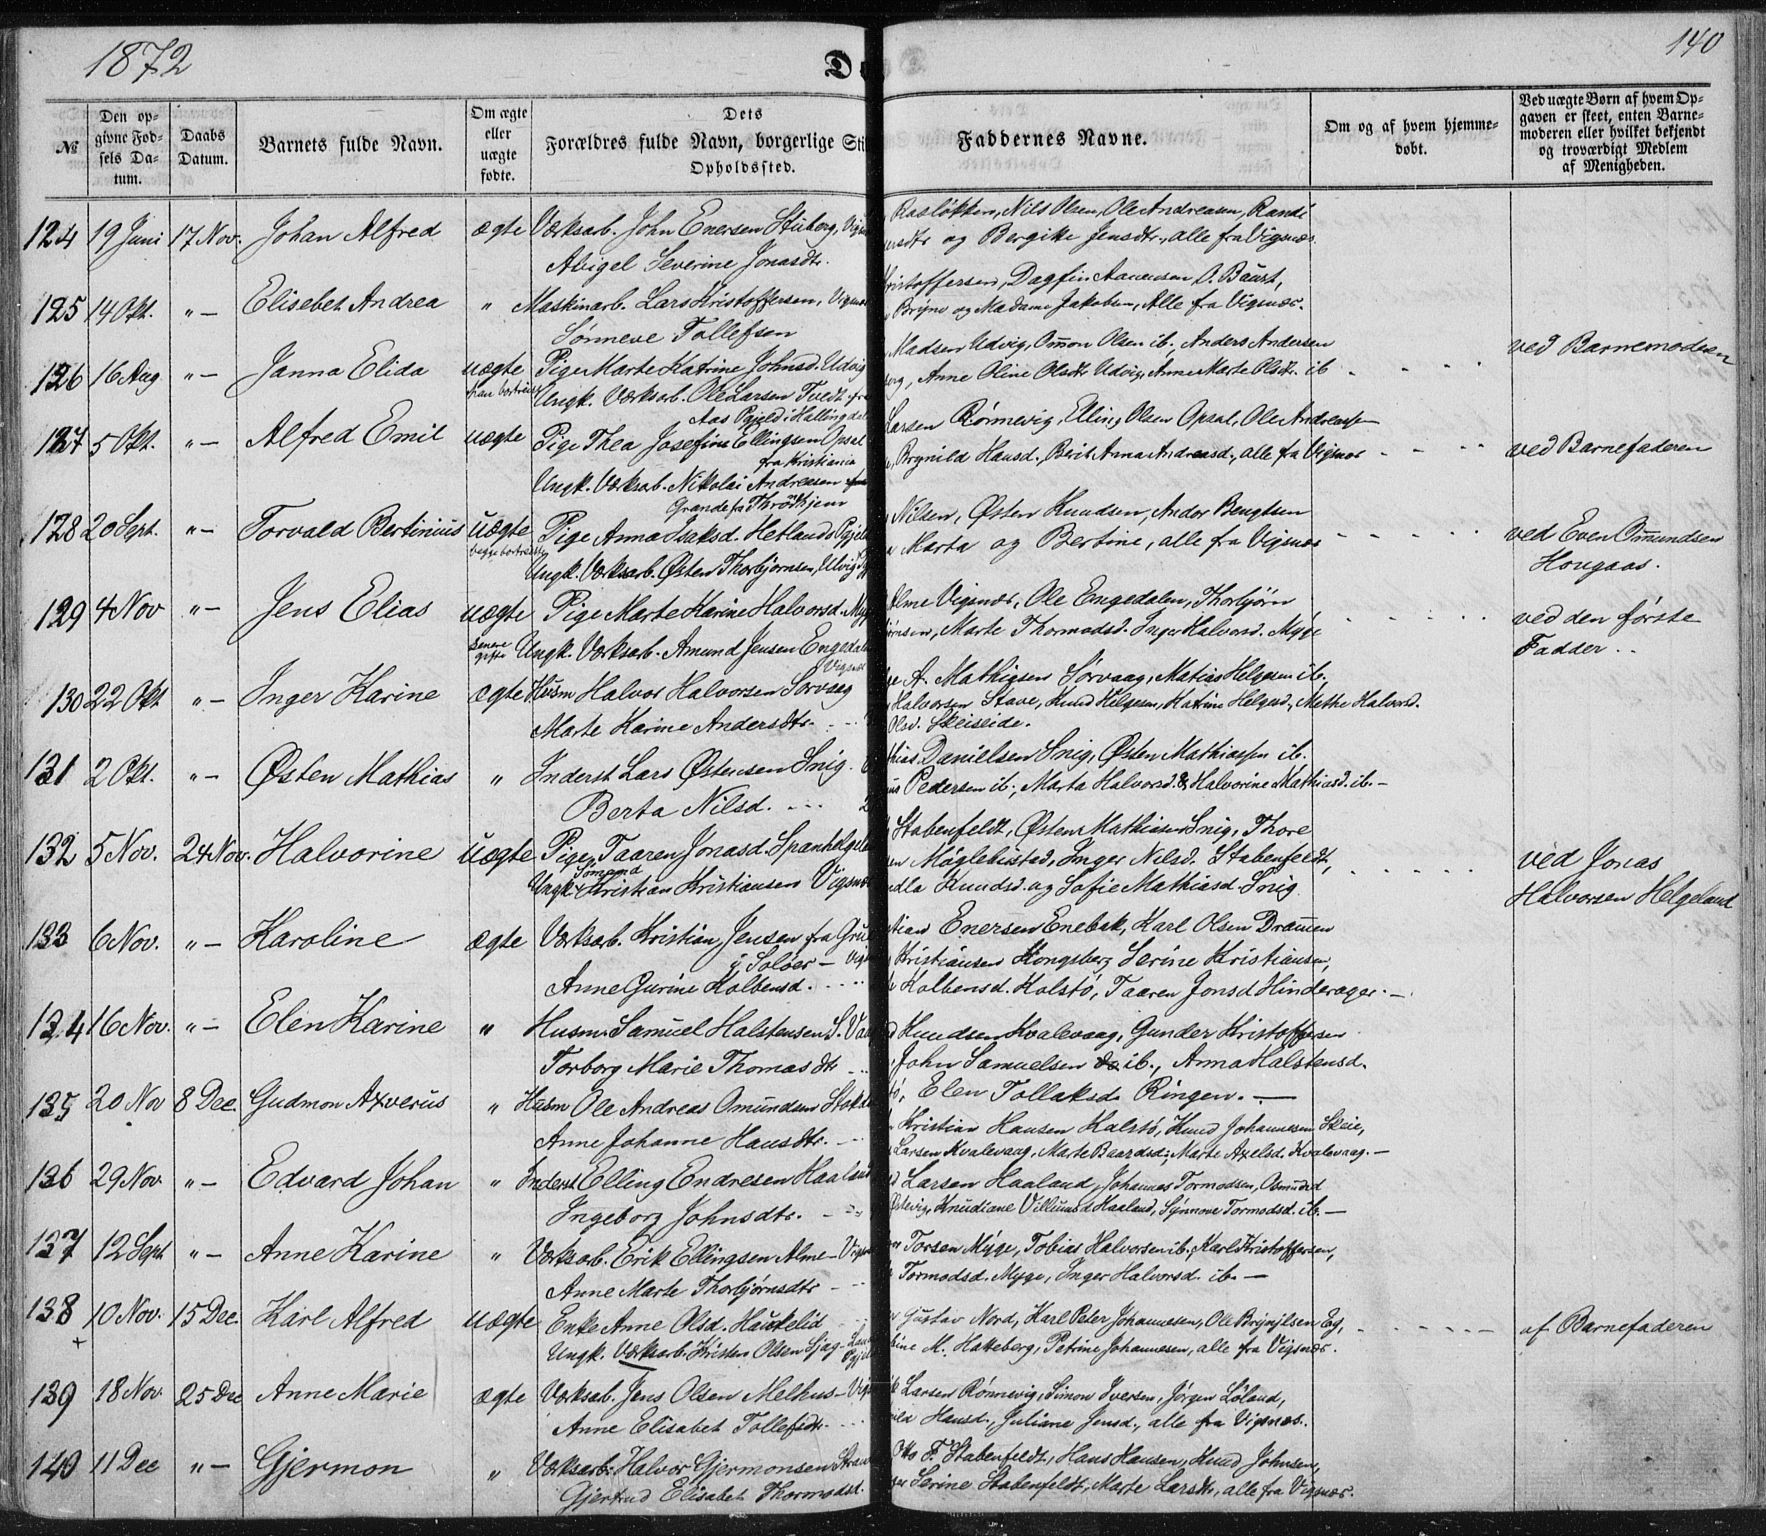 1872
140
D
№
Den op-
givne Fød-
sels Da-
tum.
Daabs
Datum.
Barnets fulde Navn.
Om ægte
eller
uægte
fødte.
Dets
Forældres fulde Navn, borgerlige Sti
Opholdssted.
Faddernes Navne.
Om og af hvem hjemme-
døbt.
Ved uægte Børn af hvem Op-
gaven er skeet, enten Barne-
moderen eller hvilket bekjendt
og troværdigt Medlem
af Menigheden.
124 19 Juni 17 Nov. Johan Alfred ægte Værksarb. John Enersen Stuberg,
Abigel Severine Jonasdtr.
Rasløkken, Nils Olsen, Ole Andreasen, Randi
og Bergike Jensdtr., alle fra Vigsnæs.
125 14 Okt. " — Elisebet Andrea " Maskinarb. Lars Kristoffersen, Vigsnæs
Sønneve Tollefsen
ristoffersen, Dagfin Aanensen O. Baust,
Bryne og Madame Jakobsen, Alle fra Vigsnæs.
126 16 Aug " — Janna Elida uægte Pige Marte Katrine Johnsd. Udvig
Ungk. Værksarb. Ole Larsen Tvedt fra
Aas Pgjeld i Hallingdal
Madsen Udvig, Omon Olsen ib, Anders Andersen
Anne Oline Olsdtr Udvig, Anne Marte Olsdtr. ib
ved Barnemoderen
127 5 Okt. " — Alfred Emil uægte Pige Thea Josefine Ellingsen Opsal
fra Kristiania
Ungk. Værksarb. Nikolai Andreasen
Grande fa Throndhjem
Larsen Rønnevig, Elling Olsen Opsal, Ole Andreassen
Brynild Hansd., Berit Anna Andreasd., alle fra Vigsnæs
ved Barnefaderen
128 20 Sept. " — Torvald Bertinius uægte Pige Anna Isaksd. Hetlands Pgjeld
Ungk. Værksarb. Østen Thorbjørnsen, Ulvig
Nilsen, Østen Knudsen, Ander Bengtsen
Marta og Bertine, alle fra Vigsnæs
ved Even Omundsen
Hougaas.
129 4 Nov " — Jens Elias uægte Pige Marte Karine Halvorsd. Myge
senere gifte Ungk. Værksarb. Amund Jensen Engedal
Vigsnæs
Alme Vigsnæs, Ole Engedalen, Thorbjørn
Marte Thormodsd. Inger Halvorsd. Myge
ved den første
Fadder..
130 22 Okt " — Inger Karine ægte Husm Halvor Halvorsen Sørvaag
Marte Karine Andersdtr.
A. Mathiesen Sørvaag, Matias Helgesen ib,
Halvorsen Stave, Knud Helgesen, Katrine Helgesd., Methe Halvorsd.
Olsd. Skeiseide.
131 2 Okt. " — Østen Mathias " Inderst Lars Østensen Snig.
Berta Nilsd.
Danielsen Snig, Østen Mathiassen ib,
Pedersen ib., Marta Halvorsd. & Halvorine Mathiasd. ib. —
132 5 Nov. 24 Nov. Halvorine uægte Pige Taaren Jonasd. Spanholgeland
Sømand
Ungk. Kristian Kristiansen Vigsnæs
Stabenfeldt, Østen Mathiasen Snig, Thore
Møglebustad, Inger Nilsd. Stabenfeldt,
Knudsd. og Sofie Mathiasd. Snig.
ved Jonas
Halvorsen Helgeland
133 6 Nov. " — Karoline ægte Værksarb. Kristian Jensen fra Grue
i Soløer —
Anne Gurine Kolbensd.
Enersen Enebak, Karl Olsen Dramen
Kristiansen Kongsberg Serine Kristiansen,
Kolbensd. Kalstø, Taaren Jonsd Hinderager. —
134 16 Nov. " — Elen Karine " Husm. Samuel Halstensen S. Vaa
Torborg Marie Thomasdtr
Knudsen Kvalevaag, Gunder Kristoffersen
John Samuelsen ib., Anna Halstensd.
135 20 Nov 8 Dec. Gudmon Axverus " Husm Ole Andreas Omundsen Stokd
Anne Johanne Hansdtr.
Elen Tollaksd. Ringen. —
Kristian Hansen Kalstø, Knud Johannesen Skeie,
Larsen Kvalevaag, Marte Baardsd., Marte Axelsd. Kvalevaag. —
136 29 Nov. " — Edvard Johan " Inderst Elling Endresen Haaland
Ingeborg Johnsdtr.
Larsen Haaland, Johannes Tormodsen, Osmund
Knudiane Villumsd Haaland, Synnove Tormodsd. ib. —
137 12 Sept " — Anne Karine " Værksarb. Erik Ellingsen Alme —
Anne Marte Thorbjørnsdtr
Torsen Myge, Tobias Halvorsen ib., Karl Kristoffersen,
Tormodsd. Myge, Inger Halvorsd. ib. —
138 10 Nov. 15 Dec. Karl Alfred uægte Enke Anne Olsd. Haukelid
Ungk. Værksarb. Kristen Olsen Sjag —
Gustav Nord, Karl Peter Johannesen, Ole Brynjlsen Eg,
M. Hatteberg, Petrine Johannesen, alle fra Vigsnæs.
af Barnefaderen
139 18 Nov. 25 Dec Anne Marie ægte Værksarb. Jens Olsen Melhus —
Anne Elisabet Tollefsdtr.
Larsen Rønnevig, Simon Iversen, Jørgen Løland,
Hansd., Juliane Jensd., alle fra Vigsnæs.
140 11 Dec " — Gjermon " Værksarb. Halvor Gjermonsen
Gjertrud Elisabet Thormodsd.
Otto F. Stabenfeldt, Hans Hansen, Knud Johnsen,
Serine Stabenfeldt, Marte Larsdtr, alle fra Vigsnæs.